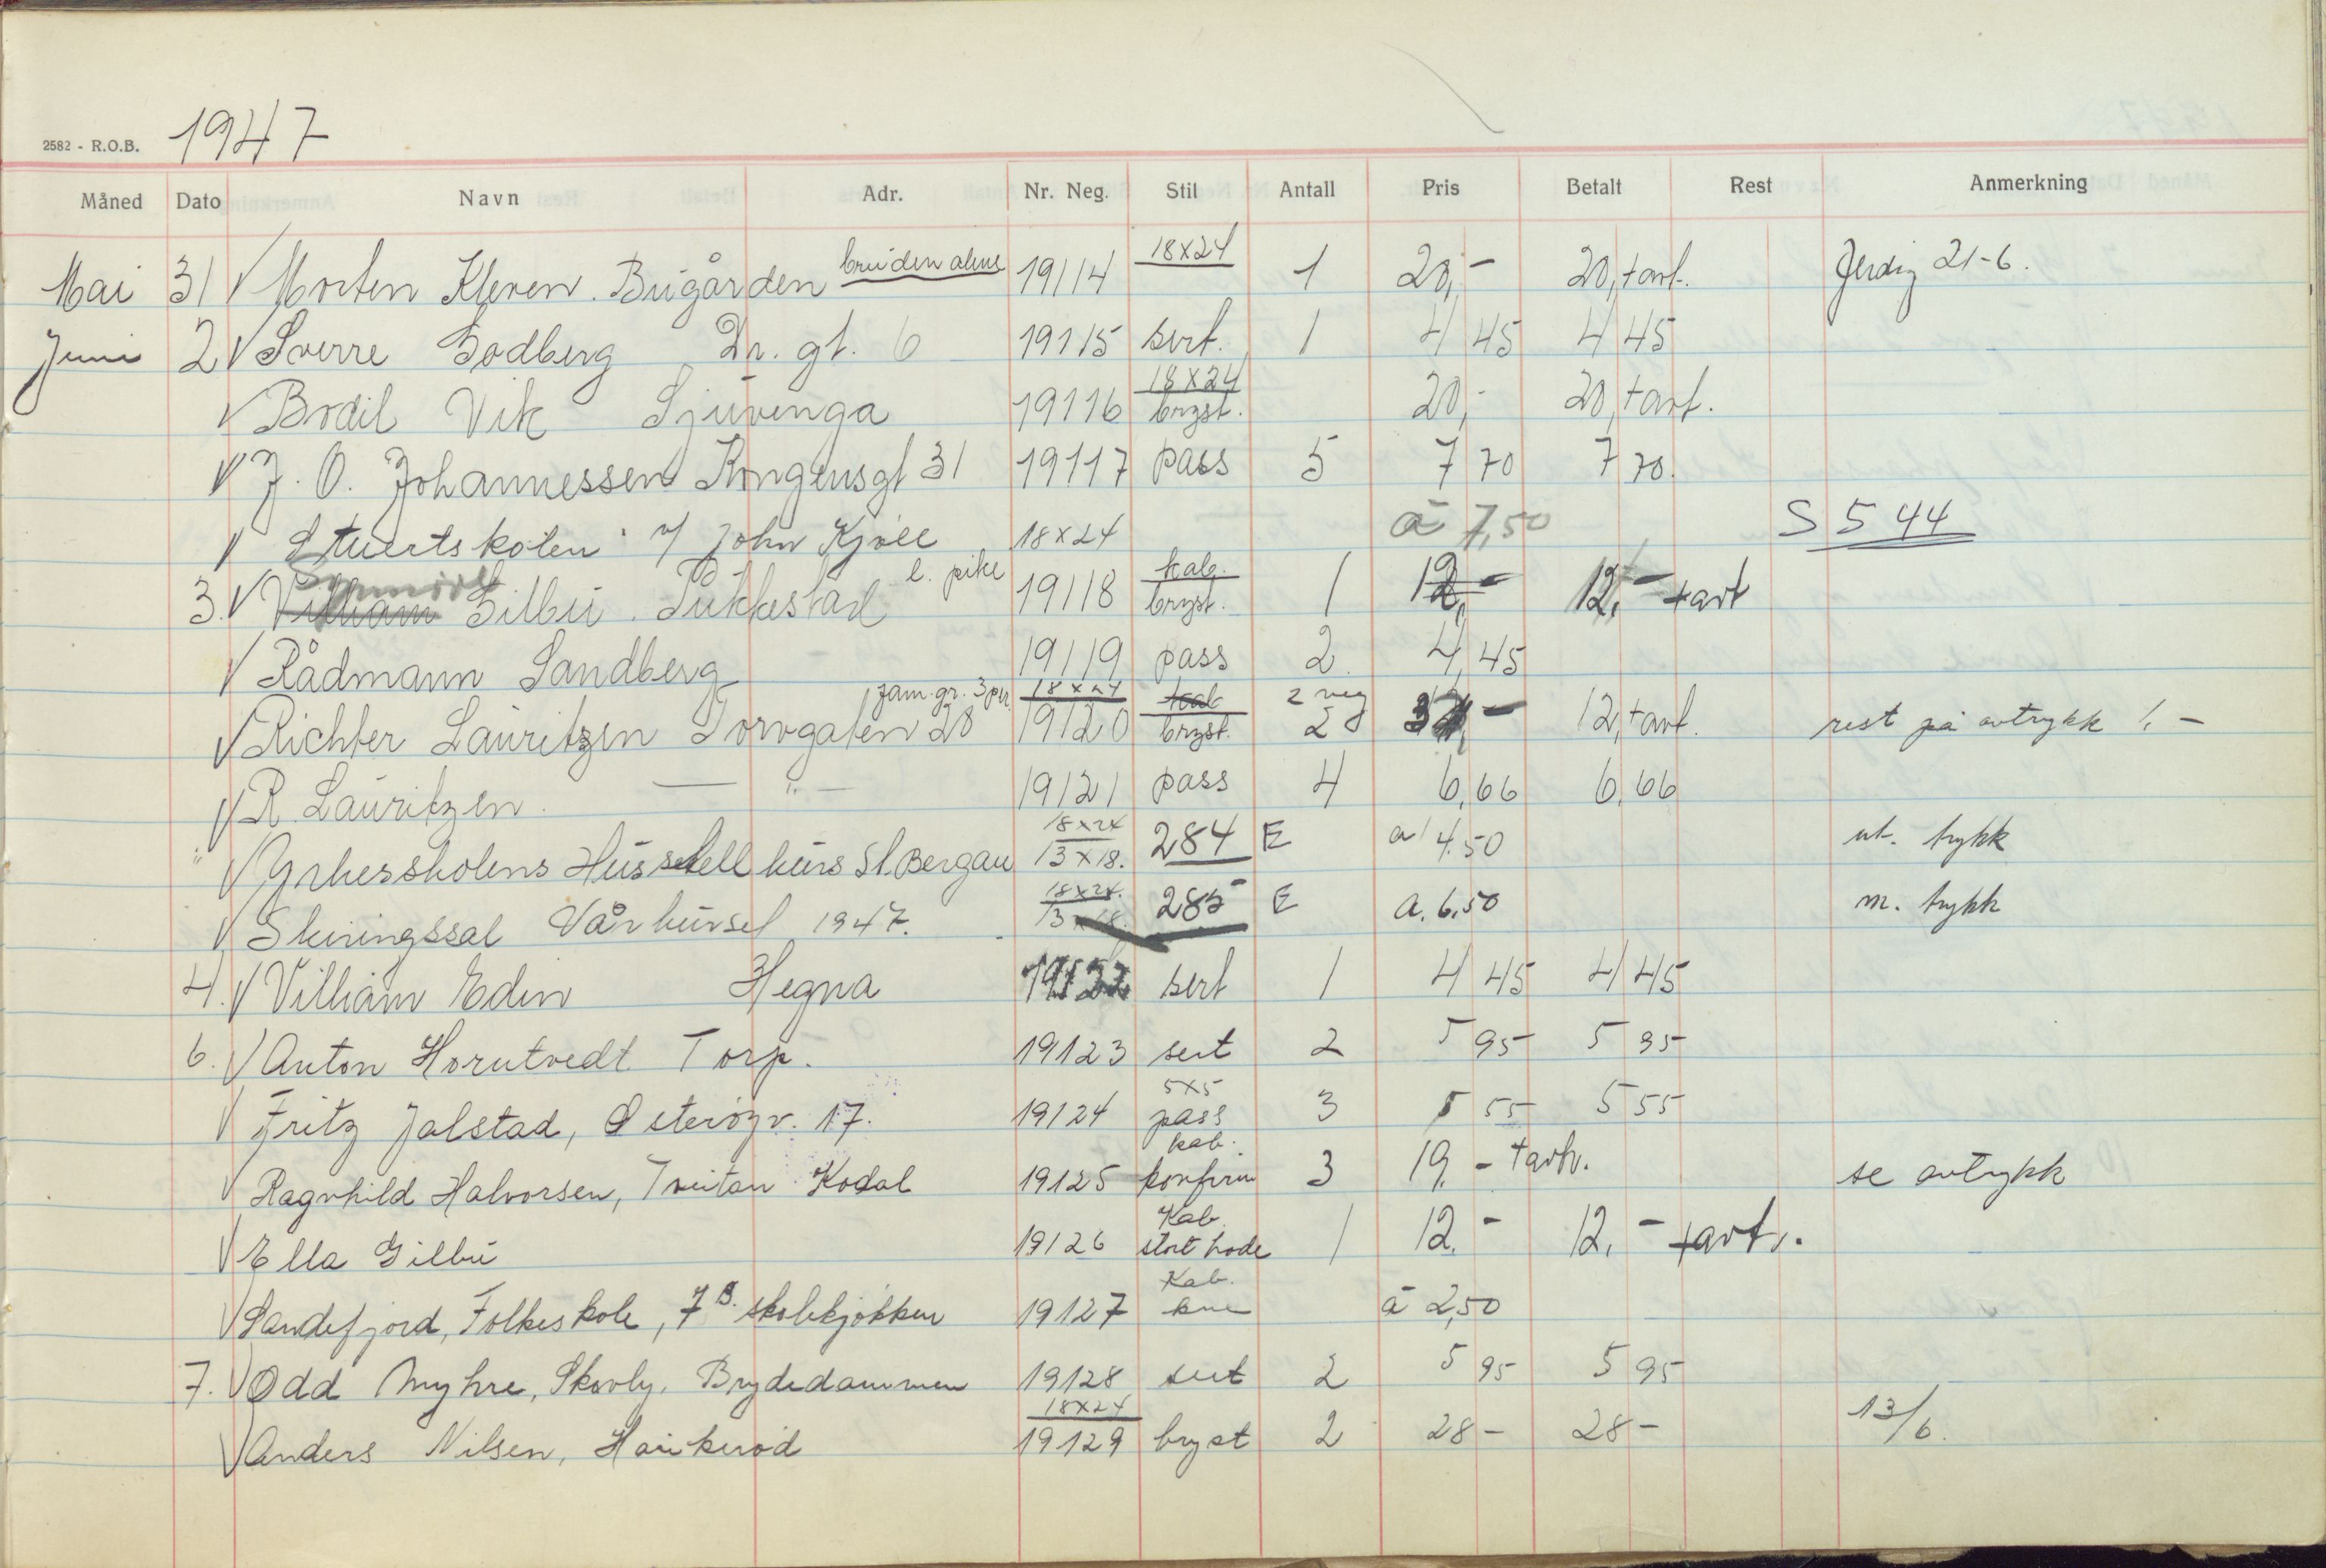 1947
2582 - R.O.B.
Måned Dato Navn Adr. Nr. Neg. Stil Antall Pris Betalt Rest Anmerkning
Mai 31 Morten Kleven. Bugården bruden alene 19114 18x24 1 20,- 20,+avt. Ferdig 21-6.
Juni 2 Sverre Sodberg Dr. gt. 6 19115 sert. 1 4 45 4 45
Bodil Vik Sjuvenga 19116 18x24 bryst. 20,- 20,+avt.
J. O. Johannessen Kongensgt 31 19117 pass 5 7 70 7 70.
Stuertskolen v/ John Kjøle 18x24 à 7,50 S 544
3. William Gilbu. Pukkestad l. pike 19118 kab. bryst. 1 12,- 12,- +avt
Rådmann Sandberg 19119 pass 2. 4,45
Richter Lauritzen Torvgaten 28 fam. gr. 3 per. 18x24 19120 kab bryst. 2 neg 2 12,+avt. rest på avtrykk 1.-
R. Lauritzen. — " — 19121 pass 4 6,66 6,66
" Yrkesskolens Husstell kurs St. Bergan 18x24 13x18. 284 E a 4.50 ut. trykk
Skiringssal Vårkursel 1947. 18x24. 13x18. 285 E a. 6,50 m. trykk
4. William Edin Hegna 19122 sert 1 4 45 4 45
6. Anton Horntvedt Torp. 19123 sert 2 5 95 5 95
Fritz Jalstad, Østerøyv. 17. 19124 5x5 pass 3 5 55 5 55
Ragnhild Halvorsen, Tveitan Kodal 19125 kab. konfirm 3 19,- +avtr. se avtrykk
Ella Gilbu 19126 Kab. stort hode 1 12.- 12,- +avtr.
Sandefjord, Folkeskole, 7B. skolekjøkken 19127 Kab. kne à 2,50
7. Odd Myhre, Skovly. Brydedammen 19128 sert 2 5 95 5 95
Anders Nilsen, Haukerød 18x24 19129 bryst 2 28- 28- 13/6.